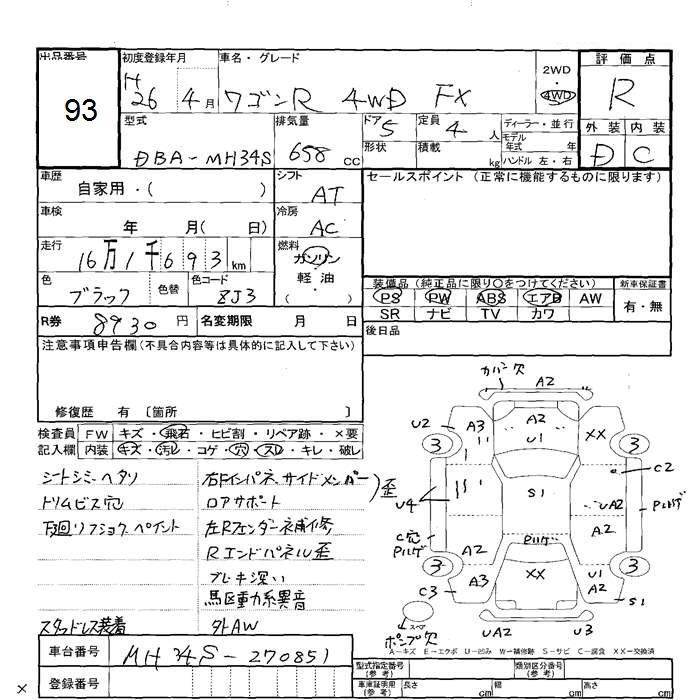 出品番号 初度登録年月 車名・グレード 2WD 4WD 評価点
93 H 26 4月 ワゴンR 4WD FX R
型式 DBA-MH34S 排気量 658 cc ドア 5 定員 4 人 ディーラー・並行 外装 内装
形状 積載 kg モデル年式 年 ハンドル 左・右 D C
車歴 自家用・( ) シフト AT セールスポイント (正常に機能するものに限ります)
車検 年 月( 日) 冷房 AC
走行 16万1千693 km 燃料 ガソリン 軽油 ( ・ )
色 ブラック 色替 色コード ZJ3 装備品(純正品に限り○をつけてください) 新車保証書
PS PW ABS エアB AW 有・無
SR ナビ TV カワ
R券 8930 円 名変期限 月 日 後日品
注意事項申告欄(不具合内容等は具体的に記入して下さい)
修復歴 有 〔箇所 〕
検査員 FW キズ・飛石・ヒビ割・リペア跡・×要
記入欄 内装 キズ・汚レ・コゲ・穴・スレ・キレ・破レ
シートシミ、ヘタリ 右Fインパネ、サイドメンバー)歪
トリムビス穴 ロアサポート
下廻リフショク、ペイント 左Rフェンダー补修
Rエンドパネル歪
ブレーキ深い
馬区動力系異音
スタッドレス装着 外AW
カバー欠 A2
U2 A3 A2 U1 XX
3 3 C2
U4 S1 UA2 Pルゲ
C穴 Pルゲ A2 Pルゲ A2
3 3
C3 A3 XX U1 S1
スペア ポンプ欠 UA2 U3
A-キズ E-エクボ U-凹み W-補修跡 S-サビ C-腐食 XX-交換済
車台番号 MH34S-270851
型式指定番号(参考) 類別区分番号(参考)
登録番号 車庫証明用(参考) 長さ cm 幅 cm 高さ cm
×